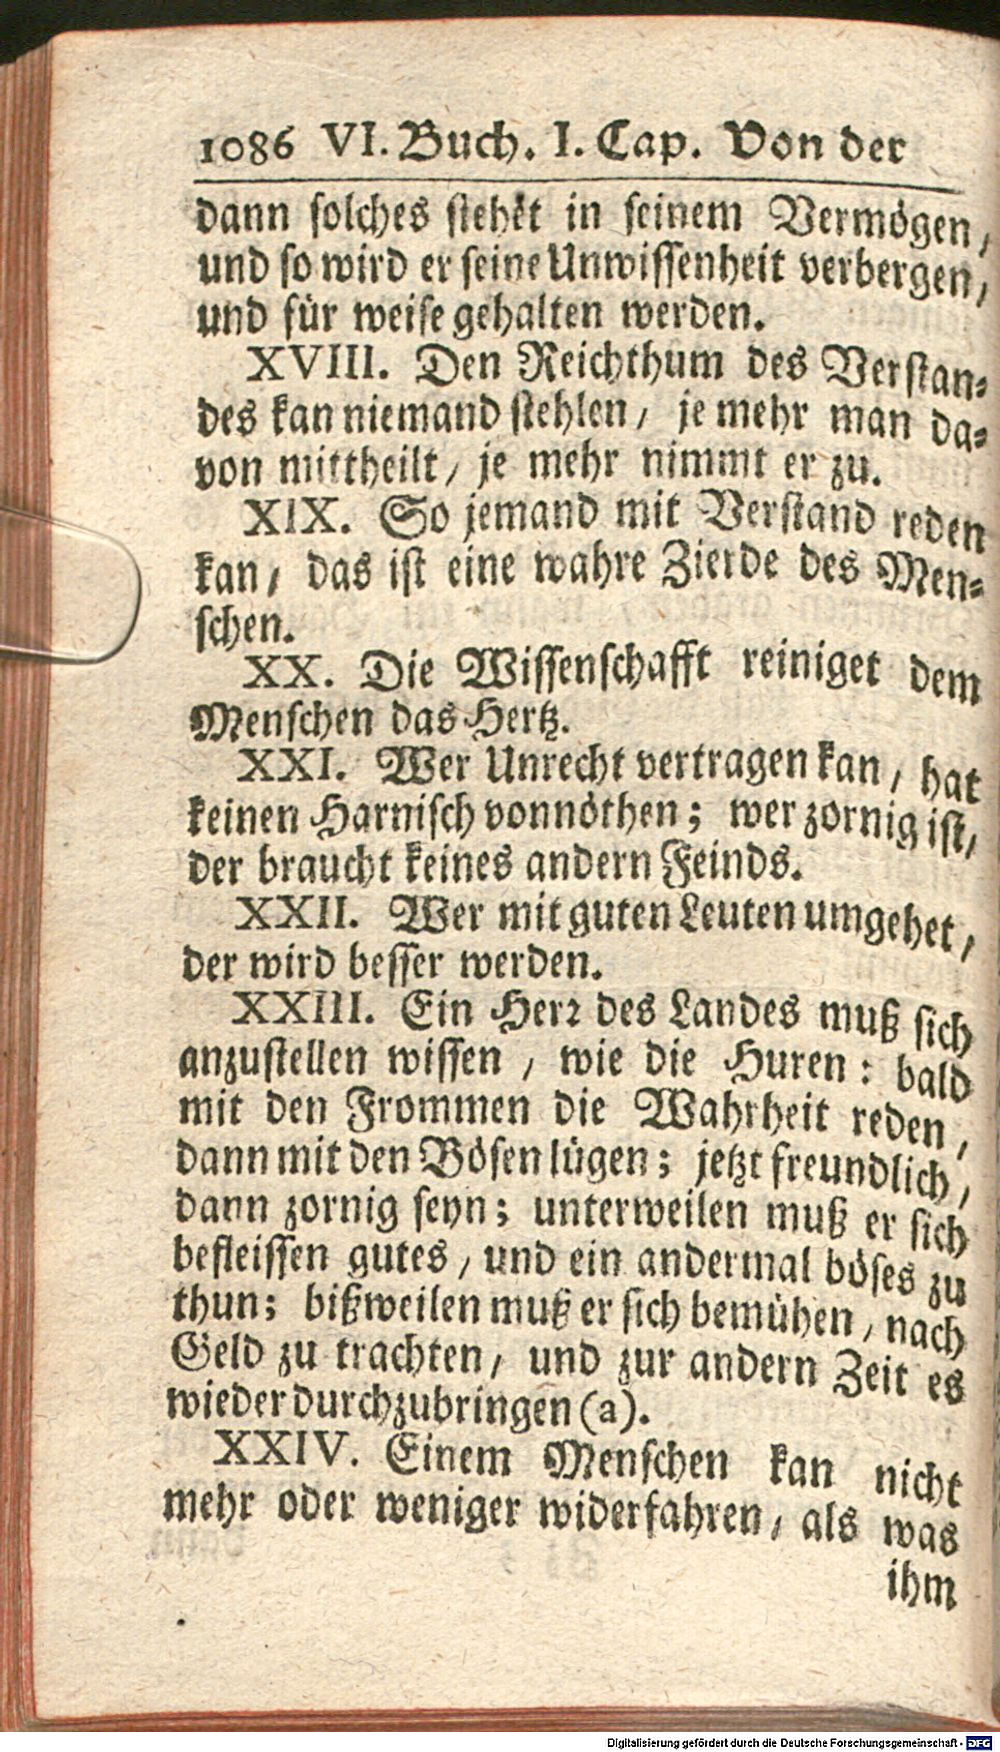 1086 VI. Buch. I. Cap. Von der
dann solches stehet in seinem Vermögen,
und so wird er seine Unwissenheit verbergen,
und für weise gehalten werden.
XVIII. Den Reichthum des Verstan-
des kan niemand stehlen, je mehr man da-
von mittheilt, je mehr nimmt er zu.
XIX. So jemand mit Verstand reden
kan, das ist eine wahre Zierde des Men-
schen.
XX. Die Wissenschafft reiniget dem
Menschen das Hertz.
XXI. Wer Unrecht vertragen kan, hat
keinen Harnisch vonnöthen; wer zornig ist,
der braucht keines andern Feinds.
XXII. Wer mit guten Leuten umgehet,
der wird besser werden.
XXIII. Ein Herr des Landes muß sich
anzustellen wissen, wie die Huren: bald
mit den Frommen die Wahrheit reden,
dann mit den Bösen lügen; jetzt freundlich,
dann zornig seyn; unterweilen muß er sich
befleissen gutes, und ein andermal böses zu
thun; bißweilen muß er sich bemühen, nach
Geld zu trachten, und zur andern Zeit es
wieder durchzubringen (a).
XXIV. Einem Menschen kan nicht
mehr oder weniger widerfahren, als was
ihm
Digitalisierung gefördert durch die Deutsche Forschungsgemeinschaft - DFG